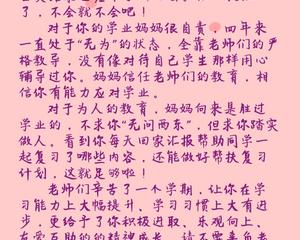 了，不会就不会吧！
对于你的学业妈妈很自责，四年来
一直处于“无为”的状态，全靠老师们的严
格教导，没有像对待自己学生那样用心
辅导过你。妈妈信任老师们的教育，相
信你有能力应对学业。
对于为人的教育，妈妈向来是胜过
学业的，不求你“无问西东”，但求你踏实
做人。看到你每天回家汇报帮助同学一
起复习了哪些内容，还能做好帮扶复习
计划，这就足够啦！
老师们辛苦了一个学期，让你在学
习能力上大幅提升、学习习惯上大有进
步，更给予了你积极进取、乐观向上、